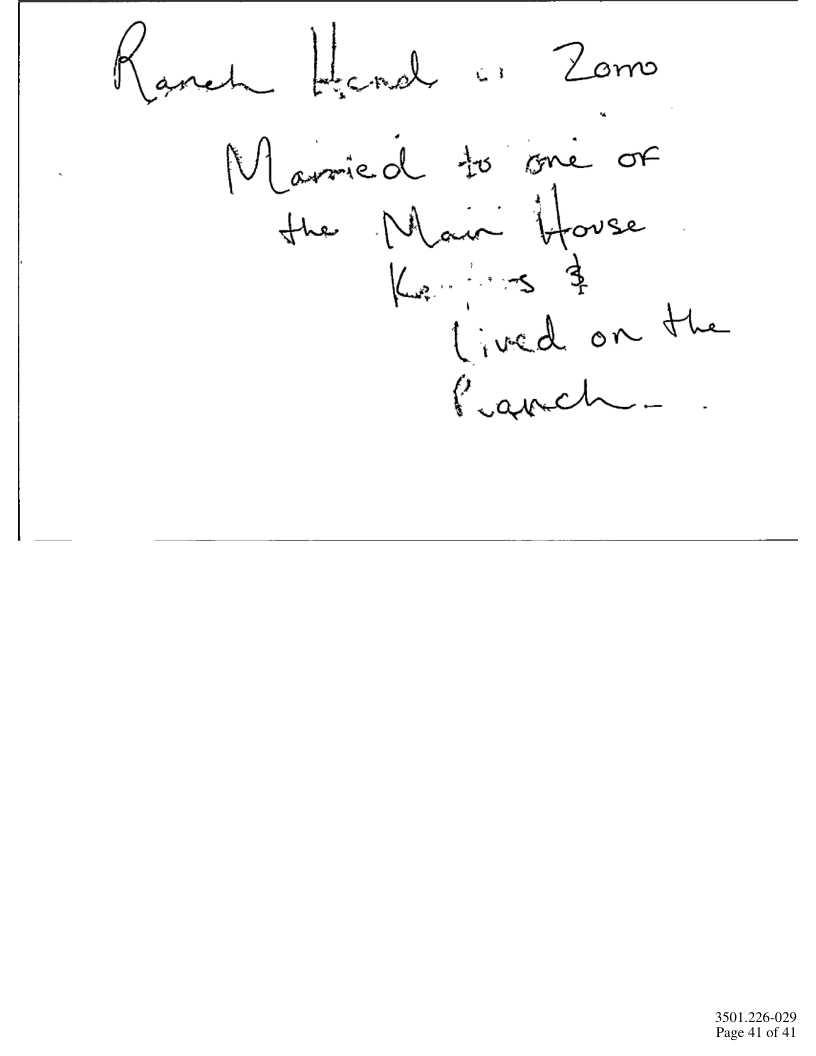 Ranch Hand Zorro
Married to one of
the Main House
&
Lived on the
Ranch -
3501.226-029
Page 41 of 41